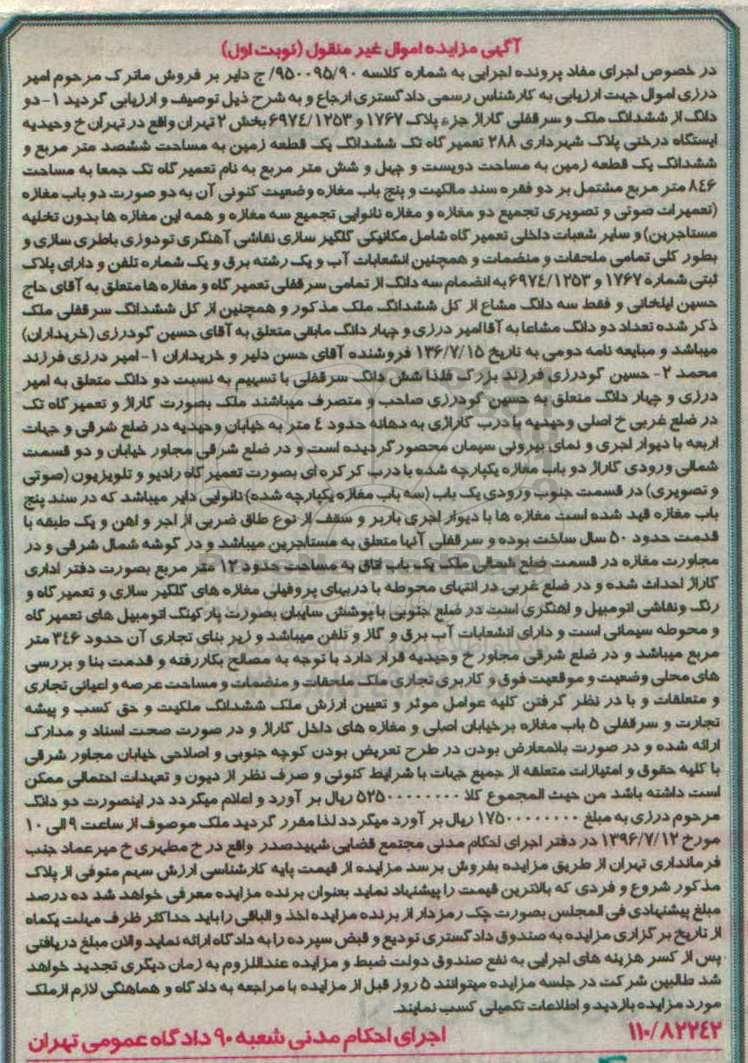 آگهی مزایده اموال غیر منقول (نوبت اول)
در خصوص اجرای مفاد پرونده اجرایی به شماره کلاسه ۹۵۰۰۹۵/۹۰/ ج دایر بر فروش ماترک مرحوم امیر
درزی اموال جهت ارزیابی به کارشناس رسمی دادگستری ارجاع و به شرح ذیل توصیف و ارزیابی گردید ۱- دو
دانگ از ششدانگ ملک و سرقفلی گاراژ جزء پلاک ۱۷۶۷ و ۶۹۷۴/۱۲۵۳ بخش ۲ تهران واقع در تهران خ وحیدیه
ایستگاه درختی پلاک شهرداری ۲۸۸ تعمیرگاه تک ششدانگ یک قطعه زمین به مساحت ششصد متر مربع و
ششدانگ یک قطعه زمین به مساحت دویست و چهل و شش متر مربع به نام تعمیرگاه تک جمعا به مساحت
۸۴۶ متر مربع مشتمل بر دو فقره سند مالکیت و پنج باب مغازه وضعیت کنونی آن به دو صورت دو باب مغازه
(تعمیرات صوتی و تصویری تجمیع دو مغازه و مغازه نانوایی تجمیع سه مغازه و همه این مغازه ها بدون تخلیه
مستاجرین) و سایر شعبات داخلی تعمیرگاه شامل مکانیکی گلگیر سازی نقاشی آهنگری تودوزی باطری سازی و
بطور کلی تمامی ملحقات و منضمات و همچنین انشعابات آب و یک رشته برق و یک شماره تلفن و دارای پلاک
ثبتی شماره ۱۷۶۷ و ۶۹۷۴/۱۲۵۳ به انضمام سه دانگ از تمامی سرقفلی تعمیرگاه و مغازه ها متعلق به آقای حاج
حسین ایلخانی و فقط سه دانگ مشاع از کل ششدانگ ملک مذکور و همچنین از کل ششدانگ سرقفلی ملک
ذکر شده تعداد دو دانگ مشاعا به آقا امیر درزی و چهار دانگ مابقی متعلق به آقای حسین گودرزی (خریداران)
میباشد و مبایعه نامه دومی به تاریخ ۱۳۶/۷/۱۵ فروشنده آقای حسن دلیر و خریداران ۱- امیر درزی فرزند
محمد ۲- حسین گودرزی فرزند بزرگ فلذا شش دانگ سرقفلی با تسهیم به نسبت دو دانگ متعلق به امیر
درزی و چهار دانگ متعلق به حسین گودرزی صاحب و متصرف میباشند ملک بصورت گاراژ و تعمیرگاه تک
در ضلع غربی خ اصلی وحیدیه با درب گاراژی به دهانه حدود ۴ متر به خیابان وحیدیه در ضلع شرقی و جهات
اربعه با دیوار اجری و نمای بیرونی سیمان محصور گردیده است و در ضلع شرقی مجاور خیابان و دو قسمت
شمالی ورودی گاراژ دو باب مغازه یکپارچه شده با درب کرکره ای بصورت تعمیرگاه رادیو و تلویزیون (صوتی
و تصویری) در قسمت جنوب ورودی یک باب (سه باب مغازه یکپارچه شده) نانوایی دایر میباشد که در سند پنج
باب مغازه قید شده است مغازه ها با دیوار اجری باربر و سقف از نوع طاق ضربی از اجر و اهن و یک طبقه با
قدمت حدود ۵۰ سال ساخت بوده و سرقفلی آنها متعلق به مستاجرین میباشد و در گوشه شمال شرقی و در
مجاورت مغازه در قسمت ضلع شمالی ملک یک باب اتاق به مساحت حدود ۱۲ متر مربع بصورت دفتر اداری
گاراژ احداث شده و در ضلع غربی در انتهای محوطه با دربهای پروفیلی مغازه های گلگیر سازی و تعمیرگاه و
رنگ ونقاشی اتومبیل و اهنگری است در ضلع جنوبی با پوشش سایبان بصورت پارکینگ اتومبیل های تعمیرگاه
و محوطه سیمانی است و دارای انشعابات آب برق و گاز و تلفن میباشد و زیر بنای تجاری آن حدود ۳۴۶ متر
مربع میباشد و در ضلع شرقی مجاور خ وحیدیه قرار دارد با توجه به مصالح بکاررفته و قدمت بنا و بررسی
های محلی وضعیت و موقعیت فوق و کاربری تجاری ملک ملحقات و منضمات و مساحت عرصه و اعیانی تجاری
و متعلقات و با در نظر گرفتن کلیه عوامل موثر و تعیین ارزش ملک ششدانگ ملکیت و حق کسب و پیشه
تجارت و سرقفلی ۵ باب مغازه برخیابان اصلی و مغازه های داخل گاراژ و در صورت صحت اسناد و مدارک
ارائه شده و در صورت بلامعارض بودن در طرح تعریض بودن کوچه جنوبی و اصلاحی خیابان مجاور شرقی
با کلیه حقوق و امتیازات متعلقه از جمیع جهات با شرایط کنونی و صرف نظر از دیون و تعهدات احتمالی ممکن
است داشته باشد من حیث المجموع کلا ۵۲۵۰۰۰۰۰۰۰۰ ریال بر آورد و اعلام میگردد در اینصورت دو دانگ
مرحوم درزی به مبلغ ۱۷۵۰۰۰۰۰۰۰۰ ریال بر آورد میگردد لذا مقرر گردید ملک موصوف از ساعت ۹ الی ۱۰
مورخ ۱۳۹۶/۷/۱۲ در دفتر اجرای احکام مدنی مجتمع قضایی شهیدصدر واقع در خ مطهری خ میرعماد جنب
فرمانداری تهران از طریق مزایده بفروش برسد مزایده از قیمت پایه کارشناسی ارزش سهم متوفی از پلاک
مذکور شروع و فردی که بالاترین قیمت را پیشنهاد نماید بعنوان برنده مزایده معرفی خواهد شد ده درصد
مبلغ پیشنهادی فی المجلس بصورت چک رمزدار از برنده مزایده اخذ و الباقی را باید حداکثر ظرف مهلت یکماه
از تاریخ برگزاری مزایده به صندوق دادگستری تودیع و قبض سپرده را به دادگاه ارائه نماید والان مبلغ دریافتی
پس از کسر هزینه های اجرایی به نفع صندوق دولت ضبط و مزایده عنداللزوم به زمان دیگری تجدید خواهد
شد طالبین شرکت در جلسه مزایده میتوانند ۵ روز قبل از مزایده با مراجعه به دادگاه و هماهنگی لازم ازملک
مورد مزایده بازدید و اطلاعات تکمیلی کسب نمایند.
۱۱۰/۸۲۲۴۲ اجرای احکام مدنی شعبه ۹۰ دادگاه عمومی تهران